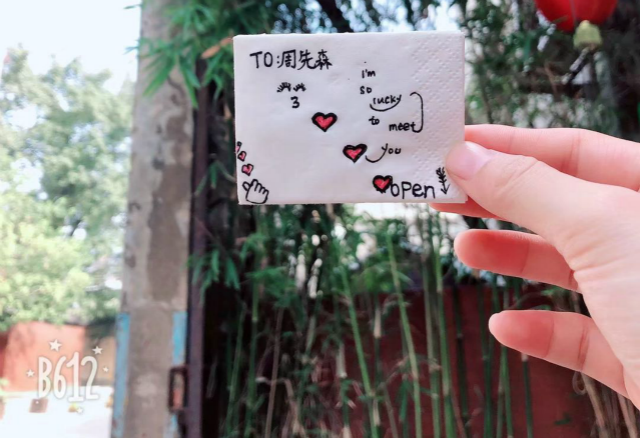 TO:周先森
3
i'm
so
lucky
to meet
you
open
B612